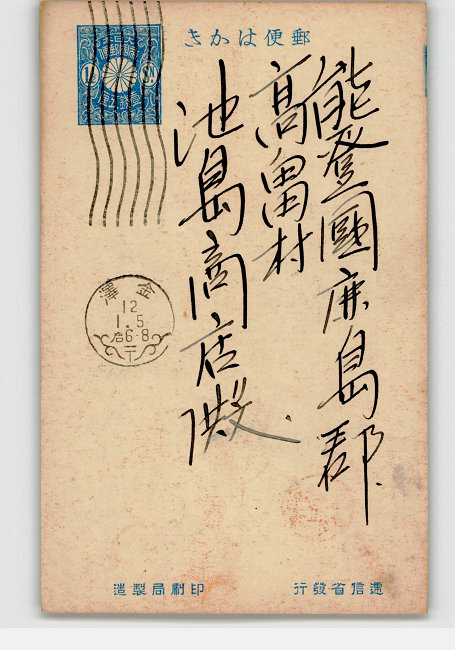 郵便はかき
大日本帝國郵便
1½
能登國鹿島郡
高畠村
池島商店殿
金澤
12
1.5
后6-8
〒
遞信省發行
印刷局製造